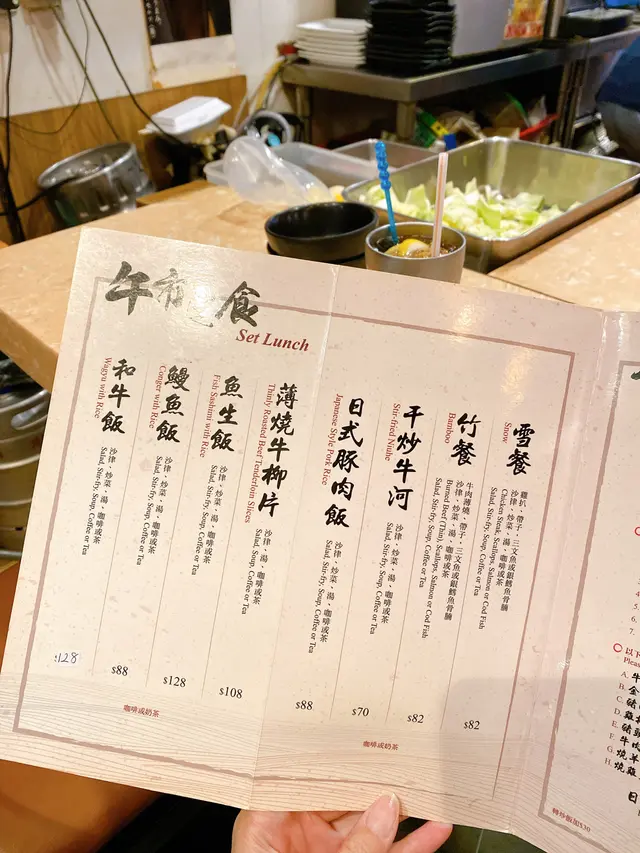 午市定食
Set Lunch
雪餐
Snow
雞扒、帶子、三文魚或銀鱈魚骨腩
沙律、炒菜、湯、咖啡或茶
Chicken Steak, Scallops, Salmon or Cod Fish
Salad, Stir-fry, Soup, Coffee or Tea
$82
竹餐
Bamboo
牛肉薄燒、帶子、三文魚或銀鱈魚骨腩
沙律、炒菜、湯、咖啡或茶
Burned Beef (Thin), Scallops, Salmon or Cod Fish
Salad, Stir-fry, Soup, Coffee or Tea
$82
干炒牛河
Stir-fried Niuhe
沙律、炒菜、湯、咖啡或茶
Salad, Stir-fry, Soup, Coffee or Tea
$70
日式豚肉飯
Japanese Style Pork Rice
沙律、炒菜、湯、咖啡或茶
Salad, Stir-fry, Soup, Coffee or Tea
$88
薄燒牛柳片
Thinly Roasted Beef Tenderloin Slices
沙律、炒菜、湯、咖啡或茶
Salad, Stir-fry, Soup, Coffee or Tea
$108
魚生飯
Fish Sashimi with Rice
沙律、炒菜、湯、咖啡或茶
Salad, Stir-fry, Soup, Coffee or Tea
$128
鰻魚飯
Conger with Rice
沙律、炒菜、湯、咖啡或茶
Salad, Stir-fry, Soup, Coffee or Tea
$88
和牛飯
Wagyu with Rice
沙律、炒菜、湯、咖啡或茶
Salad, Stir-fry, Soup, Coffee or Tea
$128
咖啡或奶茶
咖啡或奶茶
5.
6.
7.
以下
Pleas
A. 牛
B. 金
C. 豬
D. 雞
E. 豬
F. 牛
G. 燒
H. 燒
日
轉炒飯加$30